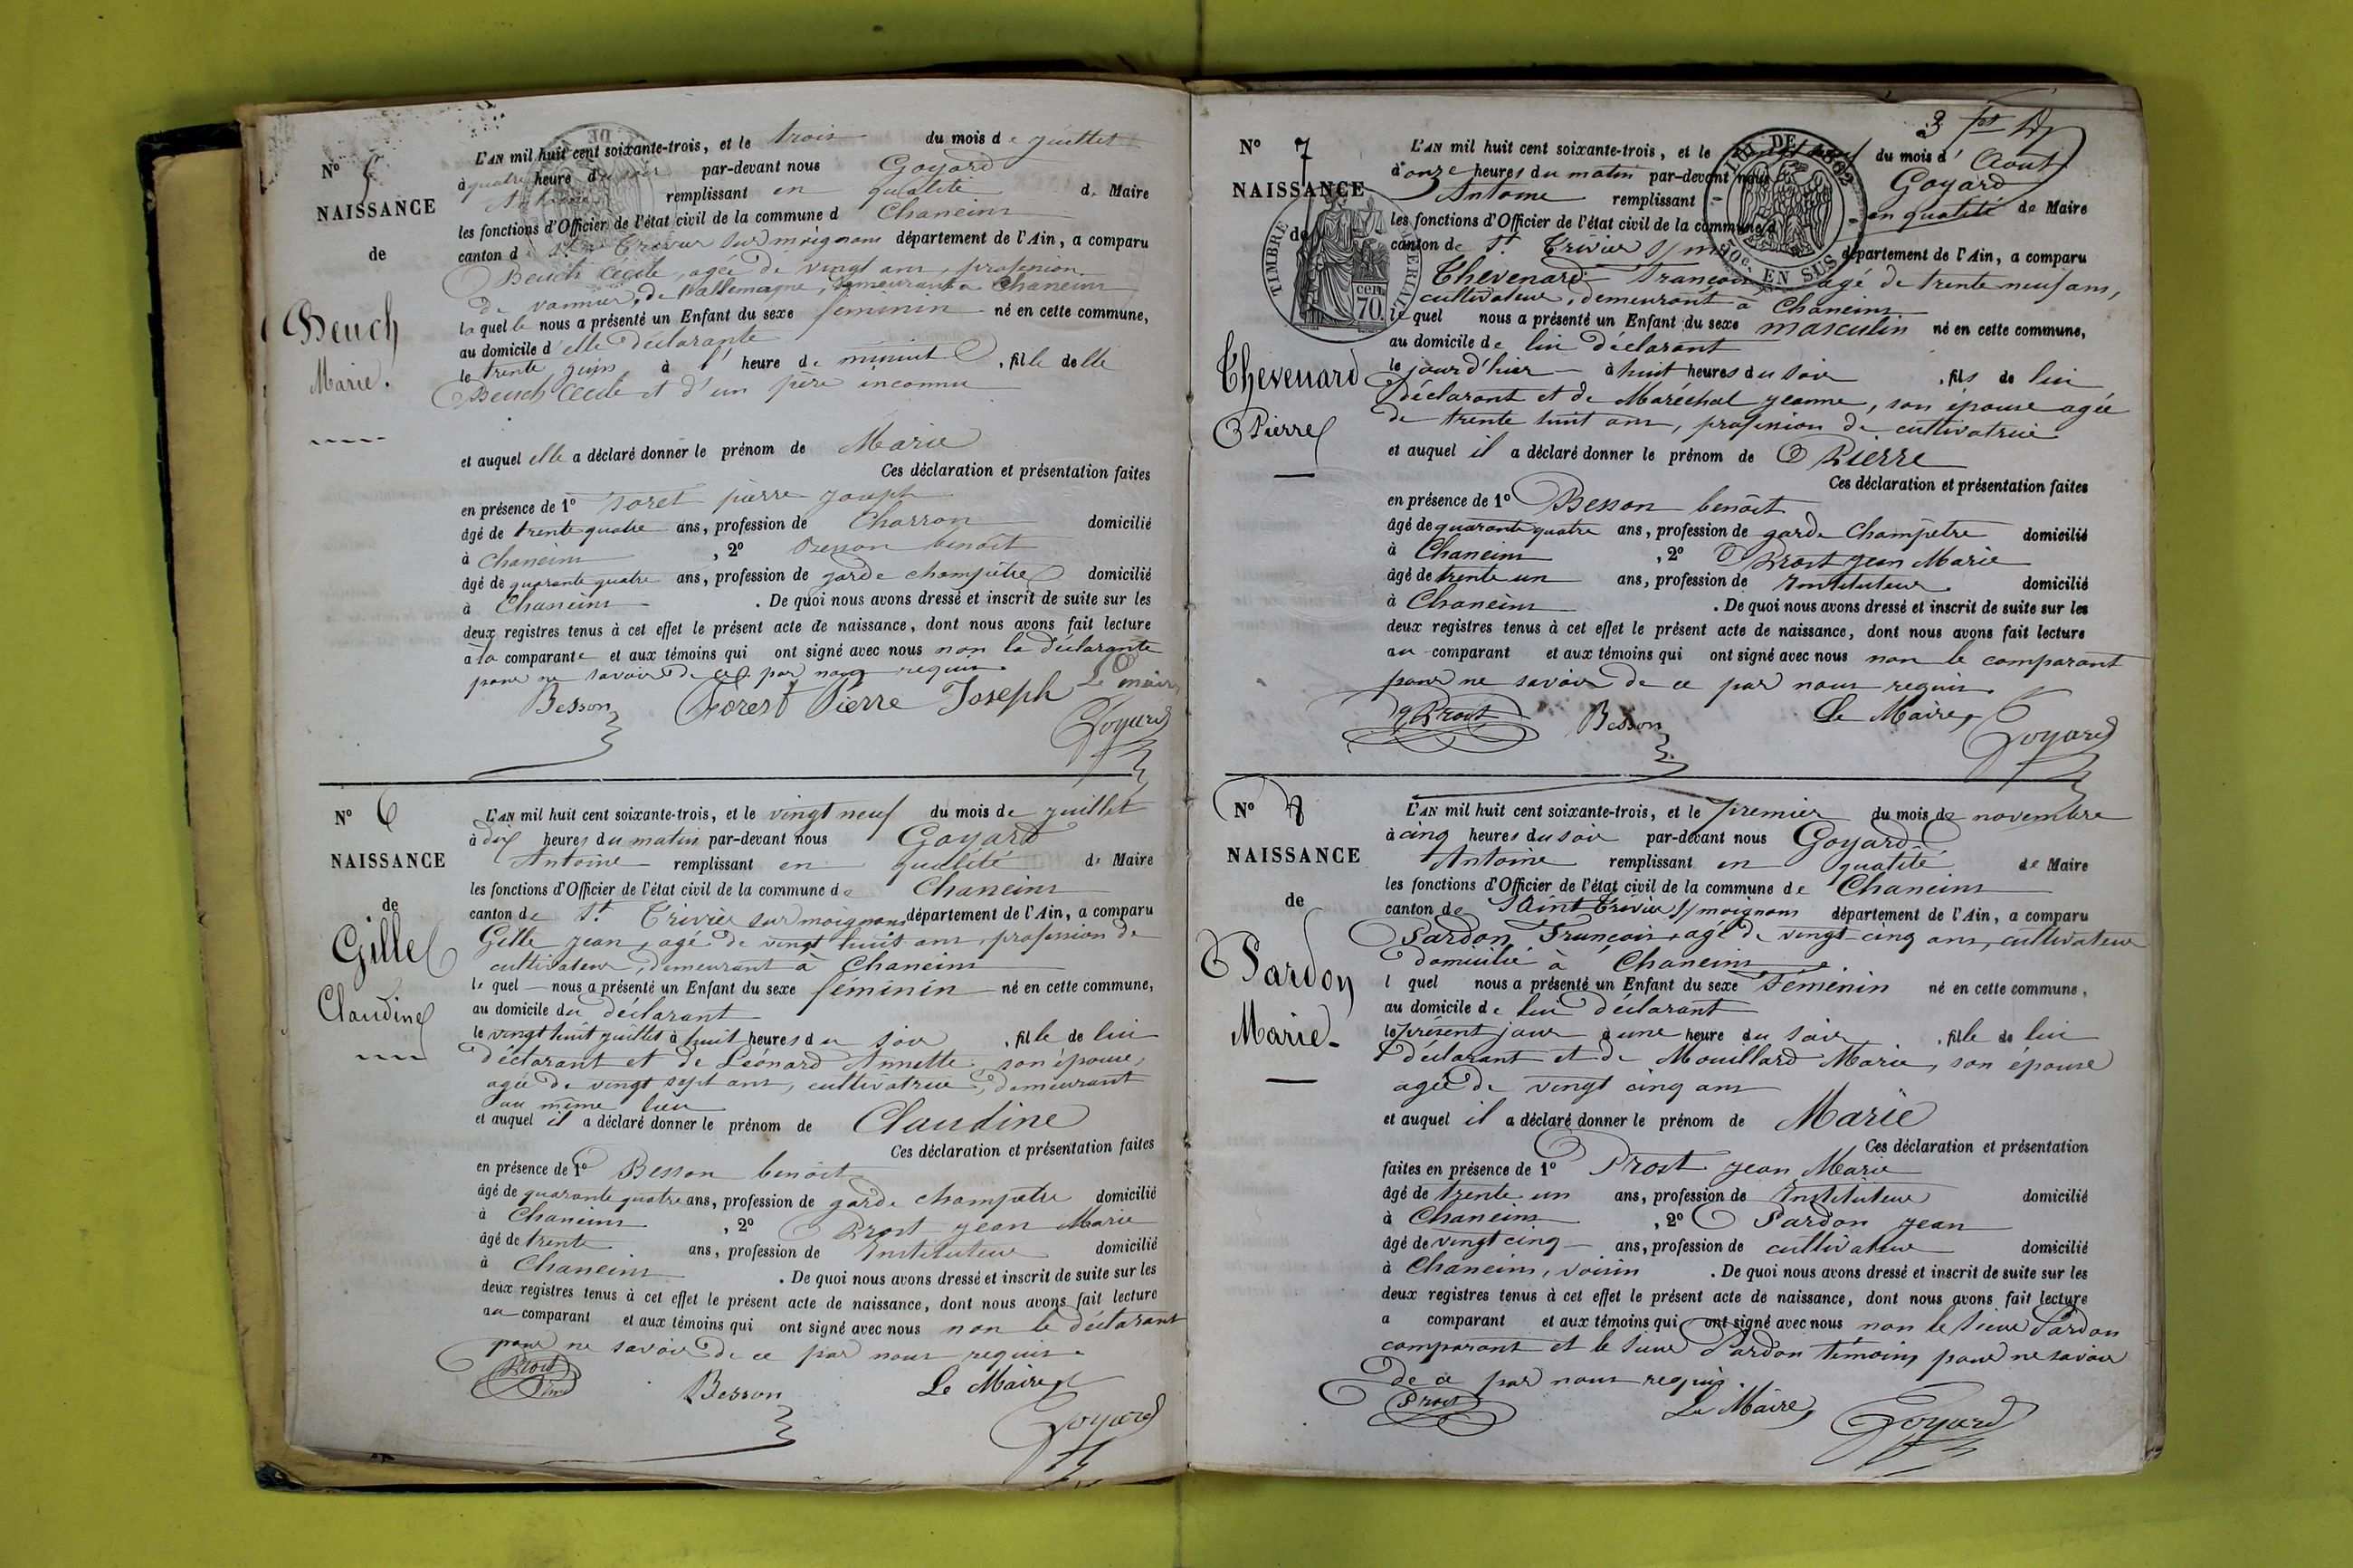 N° 5
NAISSANCE
de
Beuch
Marie.
L'AN mil huit cent soixante-trois, et le trois du mois de juillet
à quatre heure du soir par-devant nous Goyard
Antoine remplissant en qualité de Maire
les fonctions d'Officier de l'état civil de la commune d Chaneins
canton d St Trivier sur moignans département de l'Ain, a comparu
Beuch Cécile, agée de vingt ans, profession
de vannier, de demeurant à Chaneins
laquelle nous a présenté un Enfant du sexe féminin né en cette commune,
au domicile d'elle déclarante
le trente juin à l'heure de minuit, fille delle
Beuch Cécile et d'un père inconnu
et auquel elle a déclaré donner le prénom de Marie
Ces déclaration et présentation faites
en présence de 1° Foret pierre joseph
âgé de trente quatre ans, profession de Charron domicilié
à Chaneins, 2° Besson benoit
âgé de quarante quatre ans, profession de garde champêtre domicilié
à Chaneins. De quoi nous avons dressé et inscrit de suite sur les
deux registres tenus à cet effet le présent acte de naissance, dont nous avons fait lecture
à la comparante et aux témoins qui ont signé avec nous non la déclarante
pour ne savoir de ce par nous requis. Le maire
Besson Forest Pierre Joseph
Goyard
N° 6
NAISSANCE
de
Gille
Claudine
L'AN mil huit cent soixante-trois, et le vingt neuf du mois de juillet
à dix heures du matin par-devant nous Goyard
Antoine remplissant en qualité de Maire
les fonctions d'Officier de l'état civil de la commune de Chaneins
canton de St Trivier sur moignans département de l'Ain, a comparu
Gille jean, agé de vingt huit ans, profession de
cultivateur, demeurant à Chaneins
le quel nous a présenté un Enfant du sexe féminin né en cette commune,
au domicile du déclarant
le vingt huit juillet à huit heures du soir, fille de lui
déclarant et de Léonard Annette son épouse,
agée de vingt sept ans, cultivatrice, demeurant
au même lieu
et auquel il a déclaré donner le prénom de Claudine
Ces déclaration et présentation faites
en présence de 1° Besson benoit
âgé de quarante quatre ans, profession de garde champêtre domicilié
à Chaneins, 2° Prost jean Marie
âgé de trente ans, profession de Instituteur domicilié
à Chaneins. De quoi nous avons dressé et inscrit de suite sur les
deux registres tenus à cet effet le présent acte de naissance, dont nous avons fait lecture
au comparant et aux témoins qui ont signé avec nous non le déclarant
pour ne savoir de ce par nous requis.
Prost Besson Le Maire,
Goyard
3
N° 7
NAISSANCE
de
Thevenard
Pierre
TIMBRE IMPERIAL
70 cen.
LOI DE 1862
10c. EN SUS
L'AN mil huit cent soixante-trois, et le du mois d'Aout
à onze heures du matin par-devant nous Goyard
Antoine remplissant en qualité de Maire
les fonctions d'Officier de l'état civil de la commune d
canton de St Trivier s/ département de l'Ain, a comparu
Thevenard François agé de trente neuf ans,
cultivateur, demeurant à Chaneins
le quel nous a présenté un Enfant du sexe masculin né en cette commune,
au domicile de lui déclarant
le jour d'hier à huit heures du soir, fils de lui
déclarant et de Maréchal jeanne, son épouse agée
de trente huit ans, profession de cultivatrice
et auquel il a déclaré donner le prénom de Pierre
Ces déclaration et présentation faites
en présence de 1° Besson benoit
âgé de quarante quatre ans, profession de garde Champêtre domicilié
à Chaneins, 2° Prost jean Marie
âgé de trente un ans, profession de Instituteur domicilié
à Chaneins. De quoi nous avons dressé et inscrit de suite sur les
deux registres tenus à cet effet le présent acte de naissance, dont nous avons fait lecture
au comparant et aux témoins qui ont signé avec nous non le comparant
pour ne savoir de ce par nous requis.
Prost Besson Le Maire,
Goyard
N° 8
NAISSANCE
de
Pardon
Marie
L'AN mil huit cent soixante-trois, et le premier du mois de novembre
à cinq heures du soir par-devant nous Goyard
Antoine remplissant en qualité de Maire
les fonctions d'Officier de l'état civil de la commune de Chaneins
canton de Saint Trivier s/ moignans département de l'Ain, a comparu
Pardon François, agé de vingt-cinq ans, cultivateur
domicilié à Chaneins
l quel nous a présenté un Enfant du sexe Féminin né en cette commune,
au domicile de lui déclarant
le présent jour à une heure du soir, fille de lui
déclarant et de Mouillard Marie, son épouse
agée de vingt cinq ans
et auquel il a déclaré donner le prénom de Marie
Ces déclaration et présentation
faites en présence de 1° Prost jean Marie
âgé de trente un ans, profession de Instituteur domicilié
à Chaneins, 2° Pardon jean
âgé de vingt cinq ans, profession de cultivateur domicilié
à Chaneins, voisin. De quoi nous avons dressé et inscrit de suite sur les
deux registres tenus à cet effet le présent acte de naissance, dont nous avons fait lecture
a comparant et aux témoins qui ont signé avec nous non le sieur Pardon
comparant et le sieur Pardon témoins pour ne savoir
de ce par nous requis.
Prost Le Maire,
Goyard